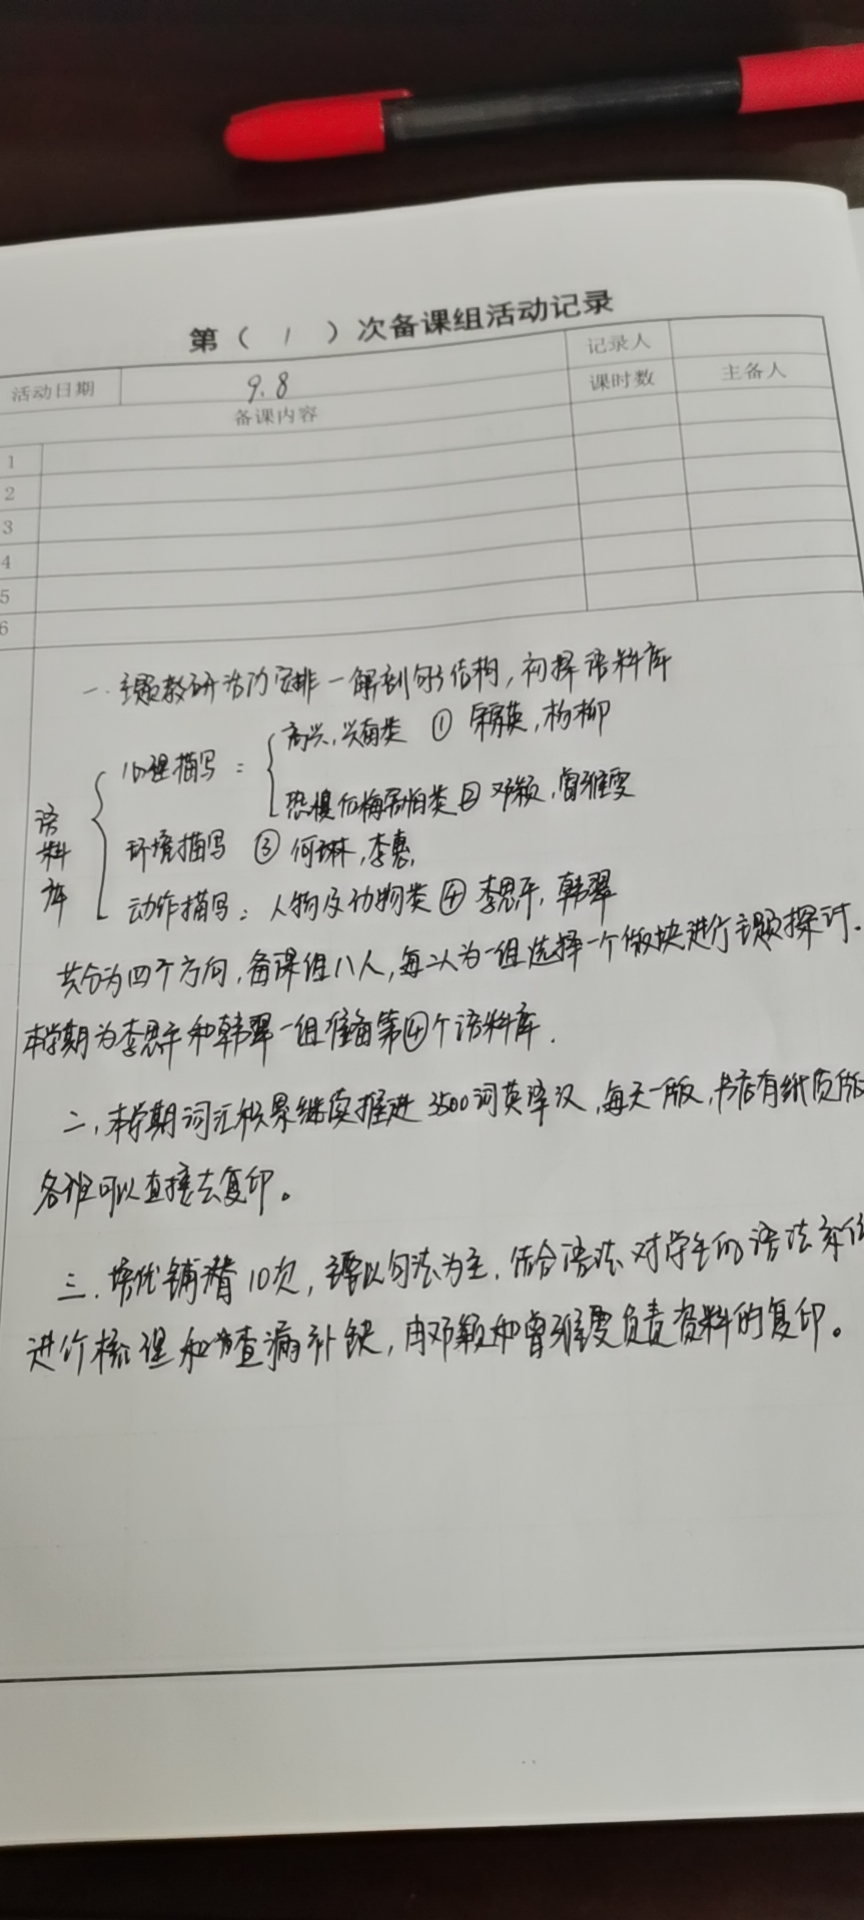 第（ 1 ）次备课组活动记录
活动日期 9.8 记录人
备课内容 课时数 主备人
1
2
3
4
5
6
一.主题教研活动安排－解剖句子结构，初探语料库
语料库
心理描写：
高兴，兴奋类 ① 英，杨柳
恐惧后悔害怕类 ② 邓颖，曾雅雯
环境描写 ③ 何琳，李惠
动作描写：人物及动物类 ④ 李思平，韩翠
共分为四个方向，备课组八人，每二人为一组选择一个板块进行主题探讨.
本学期为李思平和韩翠一组准备第④个语料库.
二，本学期词汇积累继续推进3500词英译汉，每天一版，书店有纸质版
各班可以直接去复印。
三.培优辅潜10次，主要以句法为主.结合语法对学生的语法
进行梳理和查漏补缺，由邓颖和曾雅雯负责资料的复印。